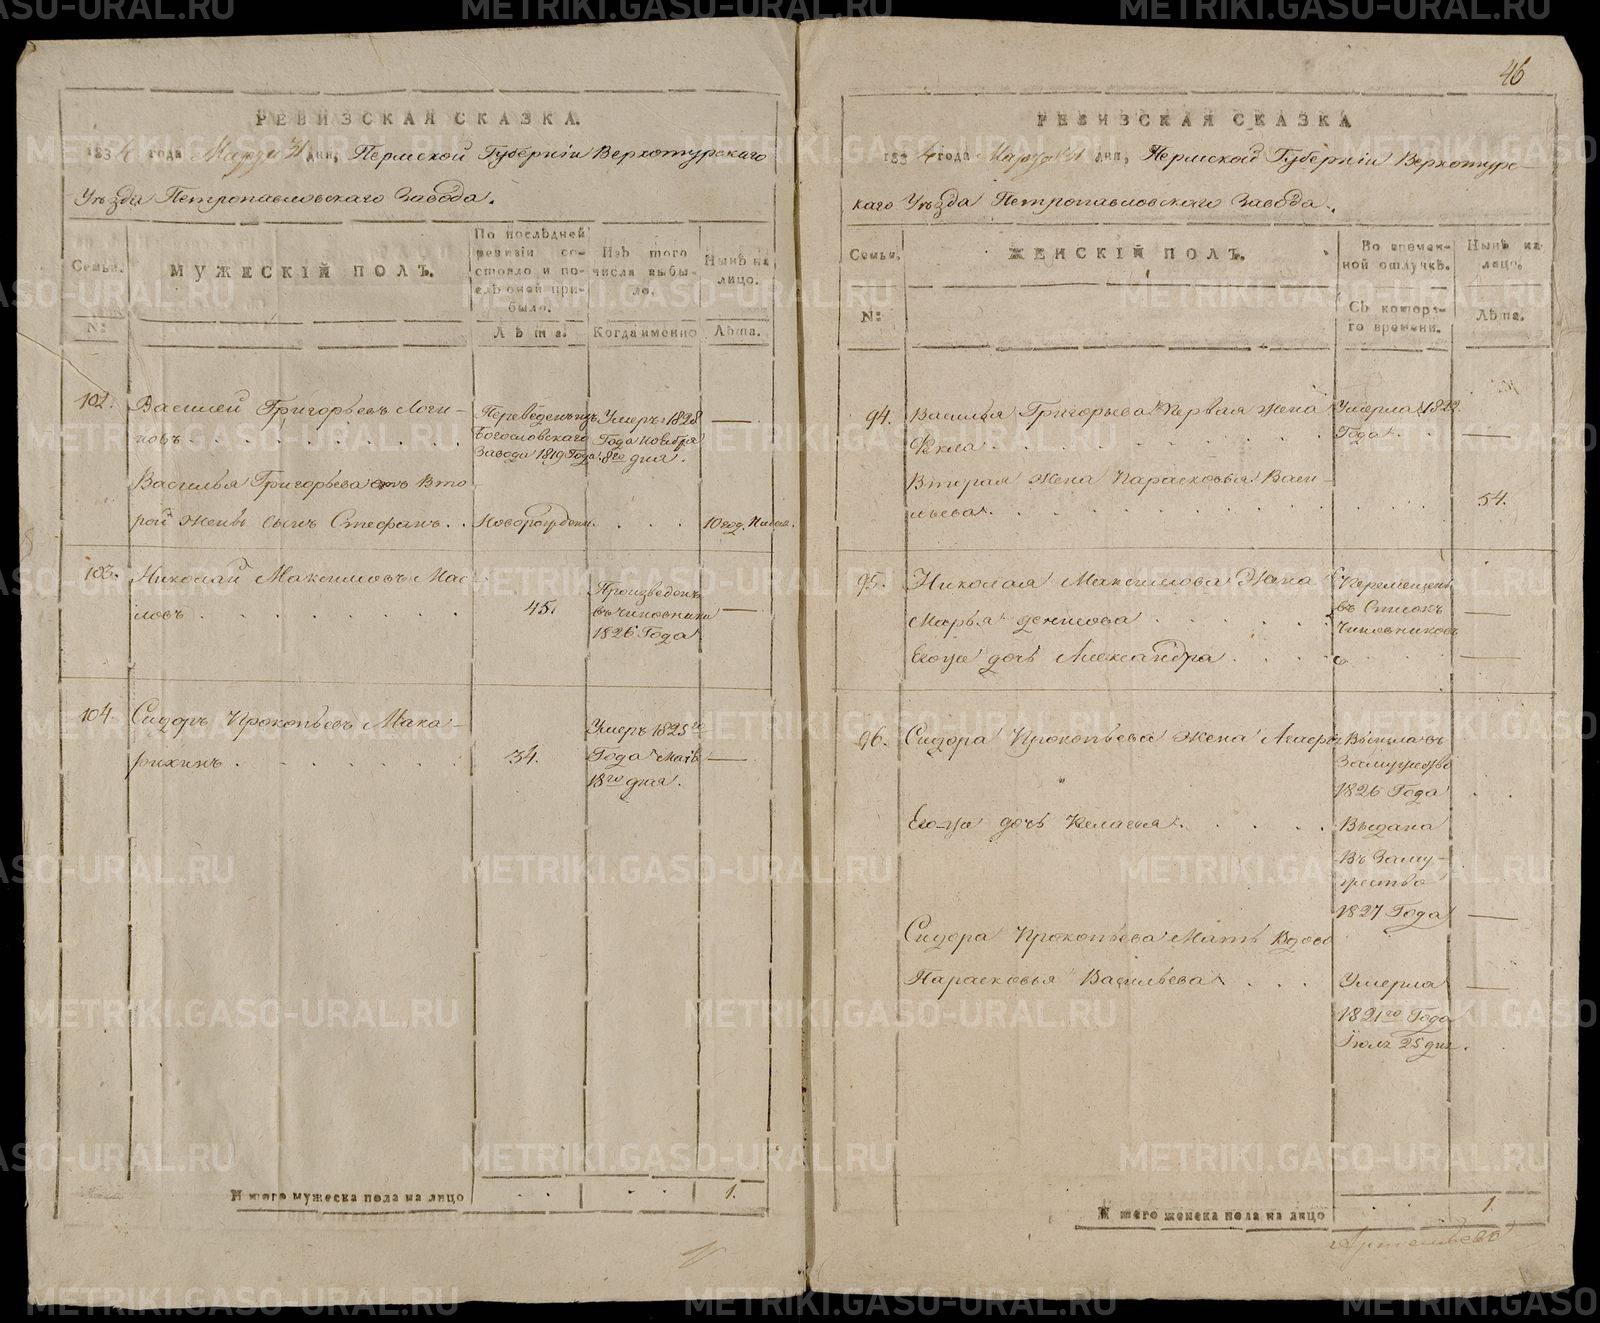 46
РЕВИЗСКАЯ СКАЗКА.
1834 года Марта 31 дня, Пермской Губерніи Верхотурскаго
Уѣзда Петропавловскаго Завода.
Семьи.
№:
МУЖЕСКІЙ ПОЛЪ.
По послѣдней
ревизіи со-
стояло и по-
слѣ оной при-
было.
Лѣта.
Изъ того
числа выбы-
ло.
Когда именно
Нынѣ на
лицо.
Лѣта.
102.
Василей Григорьевъ Логи-
новъ
Переведенъ изъ
Богословскаго
Завода 1819 Года.
Умеръ 1828
Года Ноября
8го дня.
Василья Григорьева отъ Вто
рой жены сынъ Стефанъ.
Новорожден.
10 год.
103.
Николай Максимовъ Мас
ловъ
45.
Произведенъ
въ чиновники
1826 Года
104.
Сидоръ Прокопьевъ Мака-
рихинъ
34.
Умеръ 1825го
Года Маія
18го дня.
Итого мужеска пола на лицо
1.
РЕВИЗСКАЯ СКАЗКА
1834 года Марта 31 дня, Пермской Губерніи Верхотурс-
каго Уѣзда Петропавловскаго Завода.
Семьи.
№:
ЖЕНСКІЙ ПОЛЪ.
Во времен-
ной отлучкѣ.
Съ котора-
го времени.
Нынѣ на
лицо.
Лѣта.
94.
Василья Григорьева Первая жена
Фекла
Умерла 1822
Года
Вторая жена Парасковья Васи-
льева
54.
95.
Николая Максимова Жена
Марья Денисова
Перемещены
въ Списокъ
Чиновниковъ
Егоже дочь Александра
96.
Сидора Прокопьева жена
Вышла въ
Замужство
1826 Года
Его-же дочь Пелагья
Выдана
въ Заму-
жество
1827 Года
Сидора Прокопьева Мать Вдова
Парасковья Васильева
Умерла
1821го Года
Іюля 25 дня.
Итого женска пола на лицо
1.
METRIKI.GASO-URAL.RU